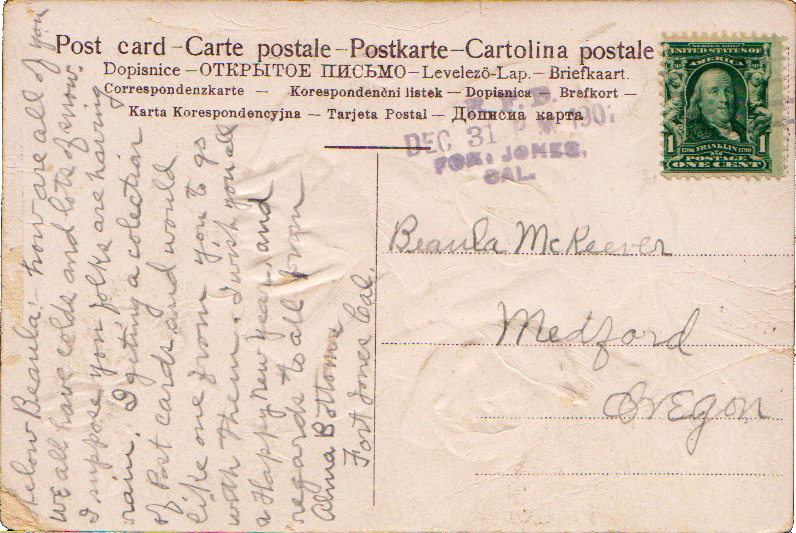 Post card – Carte postale – Postkarte – Cartolina postale
Dopisnice – ОТКРЫТОЕ ПИСЬМО – Levelező-Lap. – Briefkaart.
Correspondenzkarte – Korespondenčni listek – Dopisnica – Brefkort –
Karta Korespondencyjna – Tarjeta Postal – Дописна карта
SERIES 1902
UNITED STATES OF
AMERICA
1 1706 FRANKLIN 1790 1
POSTAGE
ONE CENT
R. F. D.
DEC 31 1907
FORT JONES,
CAL.
Hellow Beaula:- how are all of you
we all have colds and lots of snow.
I suppose you folks are having
rain. I geting a colection
of Post cards and would
like one from you to go
with them. I wish you all
a Happy New Year. and
regards to all from
Alma Bottoms
Fort Jones Cal.
Beaula McKeever
Medford
Oregon